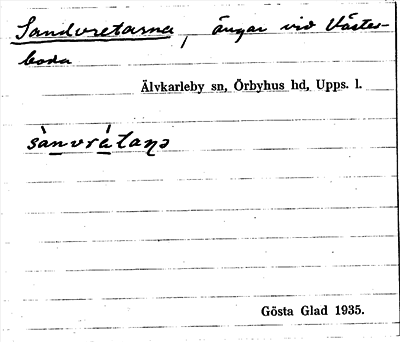 Sandvretarna, ängar vid Västerboda
Älvkarleby sn, Örbyhus hd, Upps. l.
sànvrétaṇə
Gösta Glad 1935.